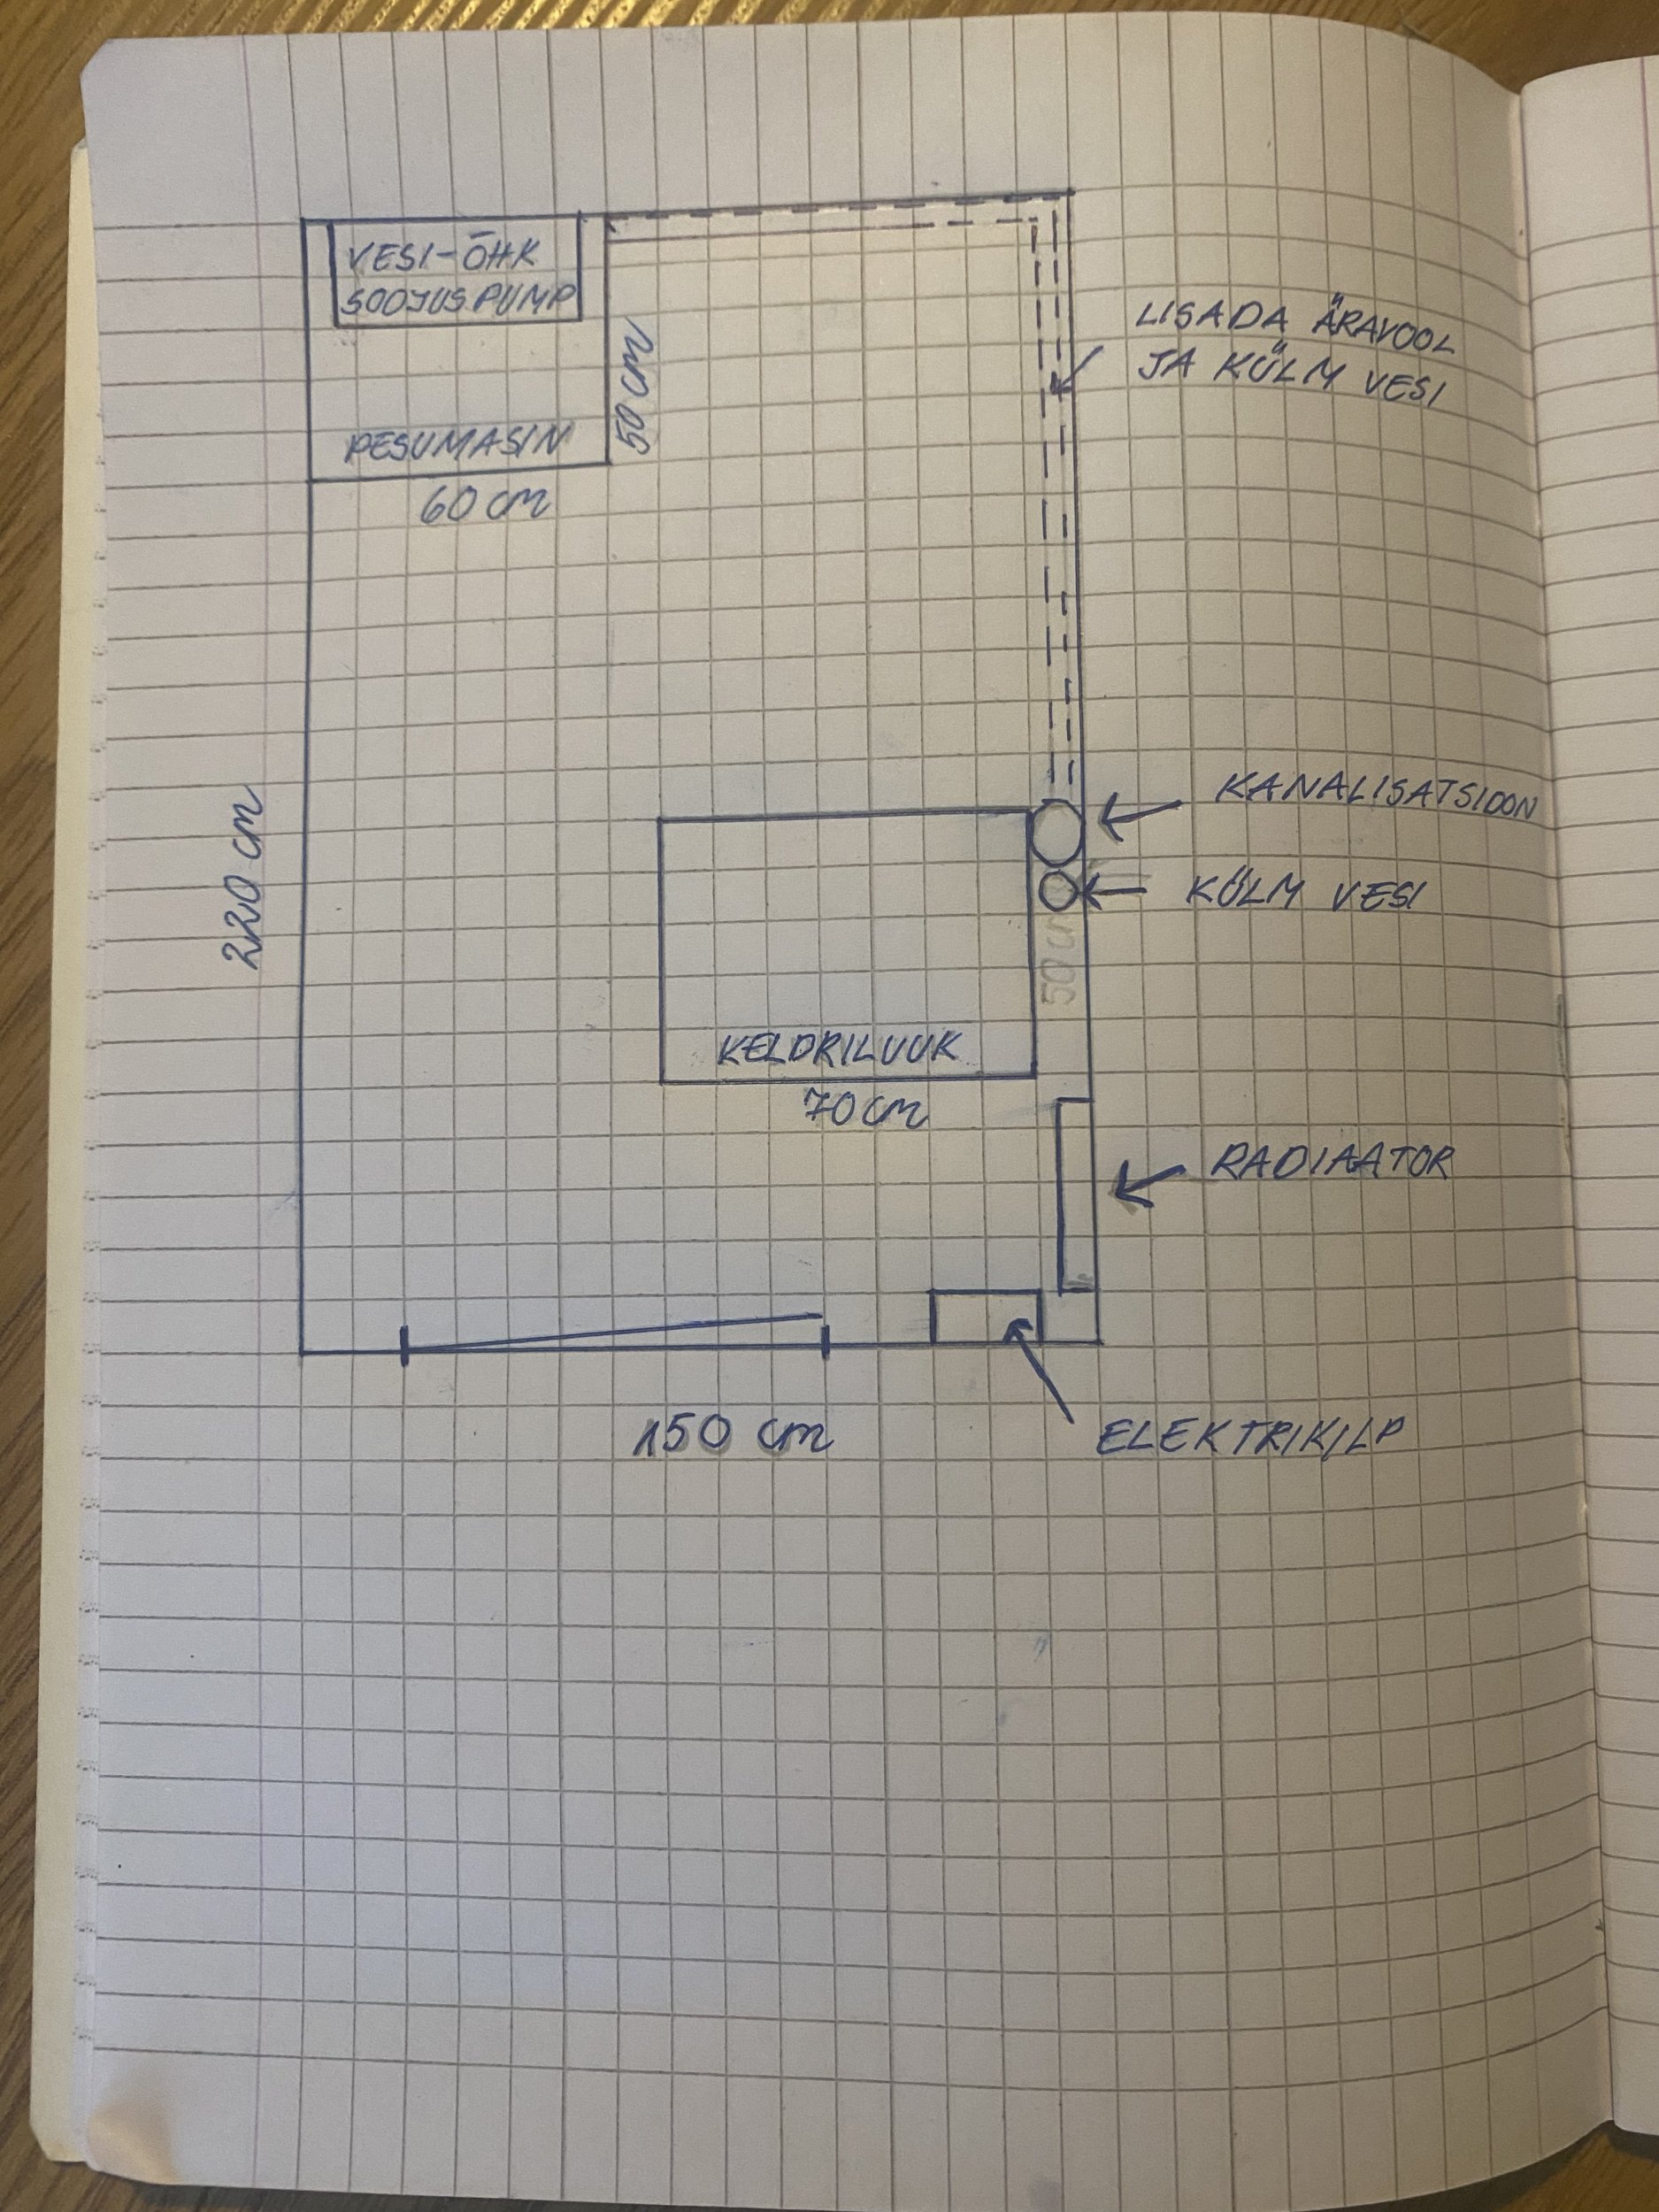 VESI-ÕHK
SOOJUSPUMP
50 cm
PESUMASIN
60 cm
LISADA ÄRAVOOL
JA KÜLM VESI
220 cm
KANALISATSIOON
KÜLM VESI
50 cm
KELDRILUUK
70 cm
RADIAATOR
150 cm
ELEKTRIKILP